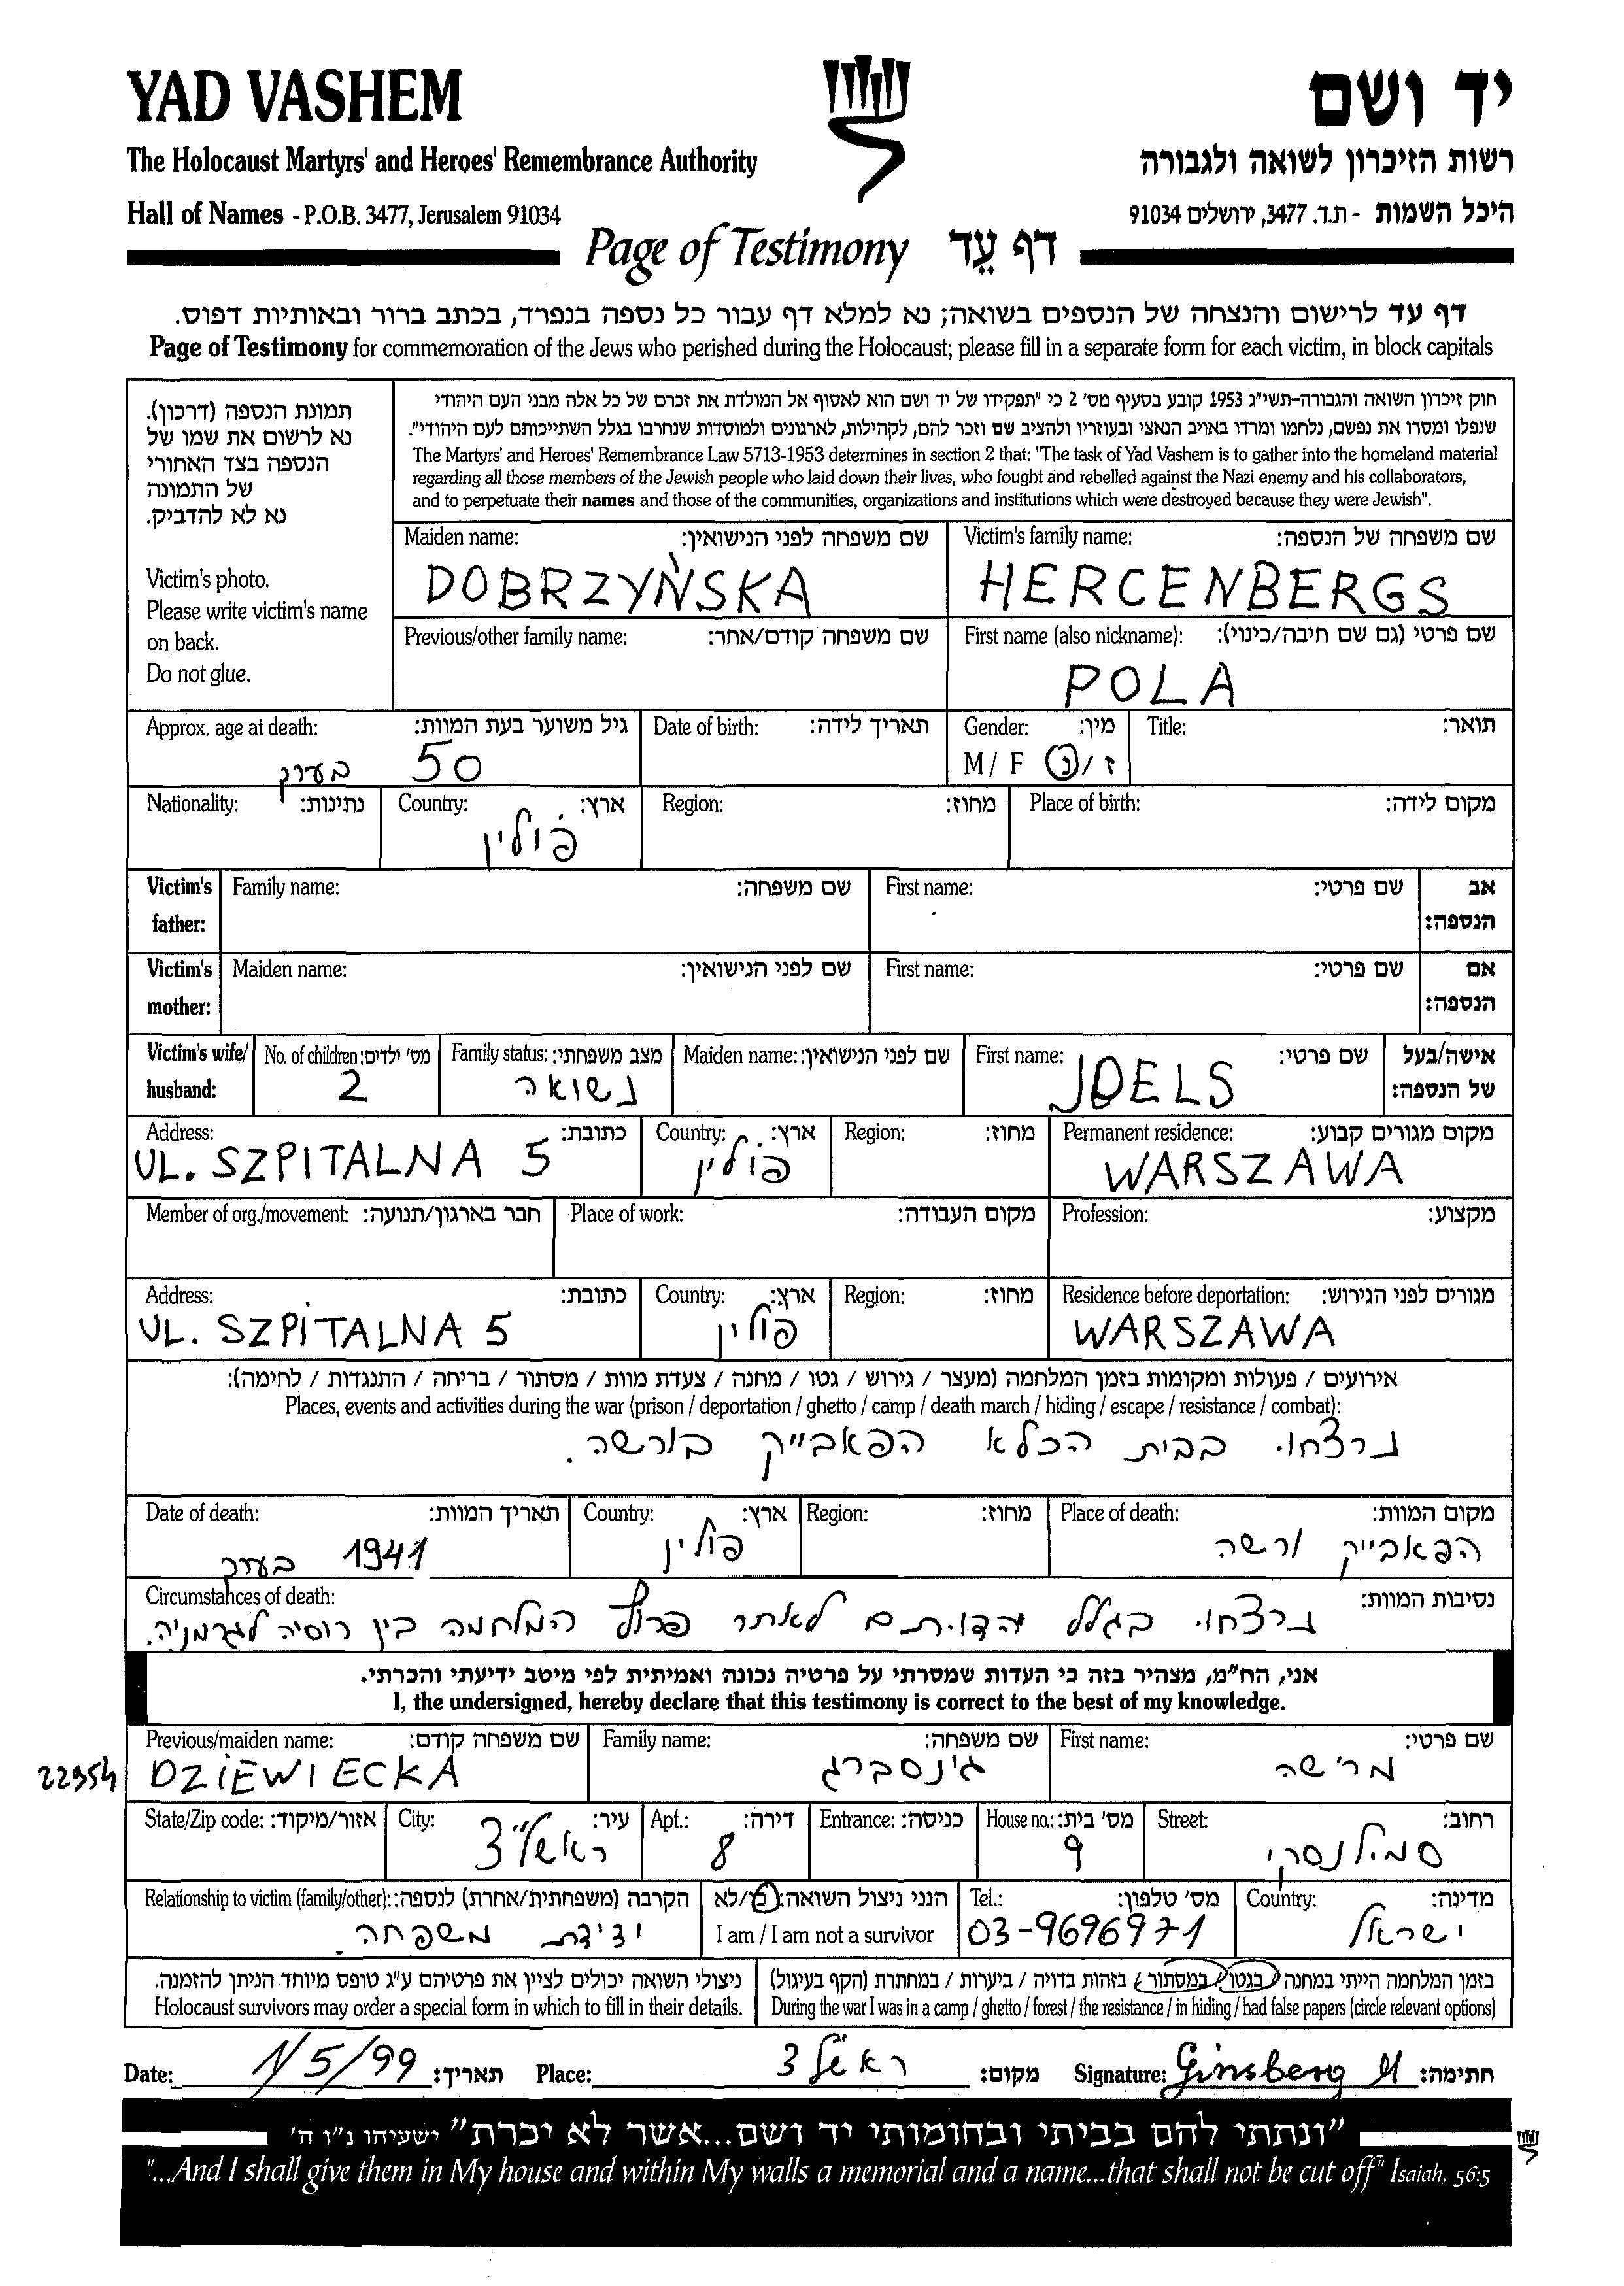 YAD VASHEM
יד ושם
The Holocaust Martyrs' and Heroes' Remembrance Authority
רשות הזיכרון לשואה ולגבורה
Hall of Names - P.O.B. 3477, Jerusalem 91034
היכל השמות - ת.ד. 3477, ירושלים 91034
Page of Testimony דף עֵד
דף עד לרישום והנצחה של הנספים בשואה; נא למלא דף עבור כל נספה בנפרד, בכתב ברור ובאותיות דפוס.
Page of Testimony for commemoration of the Jews who perished during the Holocaust; please fill in a separate form for each victim, in block capitals
תמונת הנספה (דרכון).
נא לרשום את שמו של
הנספה בצד האחורי
של התמונה
נא לא להדביק.
Victim's photo.
Please write victim's name
on back.
Do not glue.
חוק זיכרון השואה והגבורה-תשי"ג 1953 קובע בסעיף מס' 2 כי "תפקידו של יד ושם הוא לאסוף אל המולדת את זכרם של כל אלה מבני העם היהודי
שנפלו ומסרו את נפשם, נלחמו ומרדו באויב הנאצי ובעוזריו ולהציב שם וזכר להם, לקהילות, לארגונים ולמוסדות שנחרבו בגלל השתייכותם לעם היהודי".
The Martyrs' and Heroes' Remembrance Law 5713-1953 determines in section 2 that: "The task of Yad Vashem is to gather into the homeland material
regarding all those members of the Jewish people who laid down their lives, who fought and rebelled against the Nazi enemy and his collaborators,
and to perpetuate their names and those of the communities, organizations and institutions which were destroyed because they were Jewish".
Victim's family name: שם משפחה של הנספה:
HERCENBERGS
Maiden name: שם משפחה לפני הנישואין:
DOBRZYŃSKA
First name (also nickname): שם פרטי (גם שם חיבה/כינוי):
POLA
Previous/other family name: שם משפחה קודם/אחר:
Title: תואר:
Gender: מין:
M / F ז/נ
Date of birth: תאריך לידה:
Approx. age at death: גיל משוער בעת המוות:
50 בערך
Place of birth: מקום לידה:
Region: מחוז:
Country: ארץ:
פולין
Nationality: נתינות:
Victim's father: אב הנספה:
First name: שם פרטי:
Family name: שם משפחה:
Victim's mother: אם הנספה:
First name: שם פרטי:
Maiden name: שם לפני הנישואין:
Victim's wife/ husband: אישה/בעל של הנספה:
First name: שם פרטי:
JOELS
Maiden name: שם לפני הנישואין:
Family status: מצב משפחתי:
נשואה
No. of children: מס' ילדים:
2
Permanent residence: מקום מגורים קבוע:
WARSZAWA
Region: מחוז:
Country: ארץ:
פולין
Address: כתובת:
UL. SZPITALNA 5
Profession: מקצוע:
Place of work: מקום העבודה:
Member of org./movement: חבר בארגון/תנועה:
Residence before deportation: מגורים לפני הגירוש:
WARSZAWA
Region: מחוז:
Country: ארץ:
פולין
Address: כתובת:
UL. SZPITALNA 5
אירועים / פעולות ומקומות בזמן המלחמה (מעצר / גירוש / גטו / מחנה / צעדת מוות / מסתור / בריחה / התנגדות / לחימה):
Places, events and activities during the war (prison / deportation / ghetto / camp / death march / hiding / escape / resistance / combat):
נרצחו בבית הכלא הפאבייק בורשה.
Place of death: מקום המוות:
הפאבייק ורשה
Region: מחוז:
Country: ארץ:
פולין
Date of death: תאריך המוות:
1941 בערך
Circumstances of death: נסיבות המוות:
נרצחו בגלל יהדותם לאחר פרוץ המלחמה בין רוסיה לגרמניה.
אני, הח"מ, מצהיר בזה כי העדות שמסרתי על פרטיה נכונה ואמיתית לפי מיטב ידיעתי והכרתי.
I, the undersigned, hereby declare that this testimony is correct to the best of my knowledge.
First name: שם פרטי:
מרישה
Family name: שם משפחה:
גינסברג
Previous/maiden name: שם משפחה קודם:
DZIEWIECKA
22954
Street: רחוב:
סמילנסקי
House no.: מס' בית:
9
Entrance: כניסה:
Apt.: דירה:
8
City: עיר:
ראשל"צ
State/Zip code: אזור/מיקוד:
Country: מדינה:
ישראל
Tel.: מס' טלפון:
03-9696971
הנני ניצול השואה: כן/לא
I am / I am not a survivor
Relationship to victim (family/other): הקרבה (משפחתית/אחרת) לנספה:
ידידת משפחה.
בזמן המלחמה הייתי במחנה / בגטו / במסתור / בזהות בדויה / ביערות / במחתרת (הקף בעיגול)
During the war I was in a camp / ghetto / forest / the resistance / in hiding / had false papers (circle relevant options)
ניצולי השואה יכולים לציין את פרטיהם ע"ג טופס מיוחד הניתן להזמנה.
Holocaust survivors may order a special form in which to fill in their details.
Date: 1/5/99 תאריך: Place: ראשל"צ מקום: Signature: Ginsberg M חתימה:
"ונתתי להם בביתי ובחומותי יד ושם...אשר לא יכרת" ישעיהו נ"ו ה'
"...And I shall give them in My house and within My walls a memorial and a name...that shall not be cut off" Isaiah, 56:5